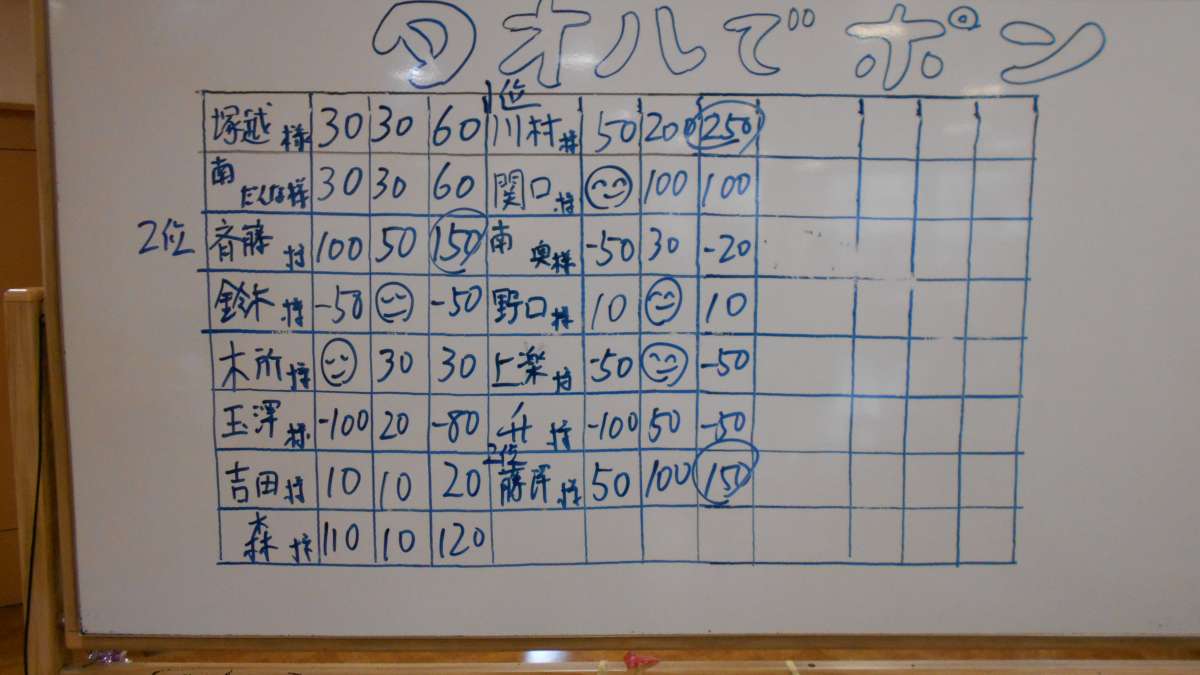 タオルでポン
1位
塚越様 30 30 60 川村様 50 200 250
南だんな様 30 30 60 関口様 100 100
2位 斉藤様 100 50 150 南奥様 -50 30 -20
鈴木様 -50 -50 野口様 10 10
木所様 30 30 上楽様 -50 -50
玉澤様 -100 20 -80 升様 -100 50 -50
2位
吉田様 10 10 20 藤岸様 50 100 150
森様 110 10 120